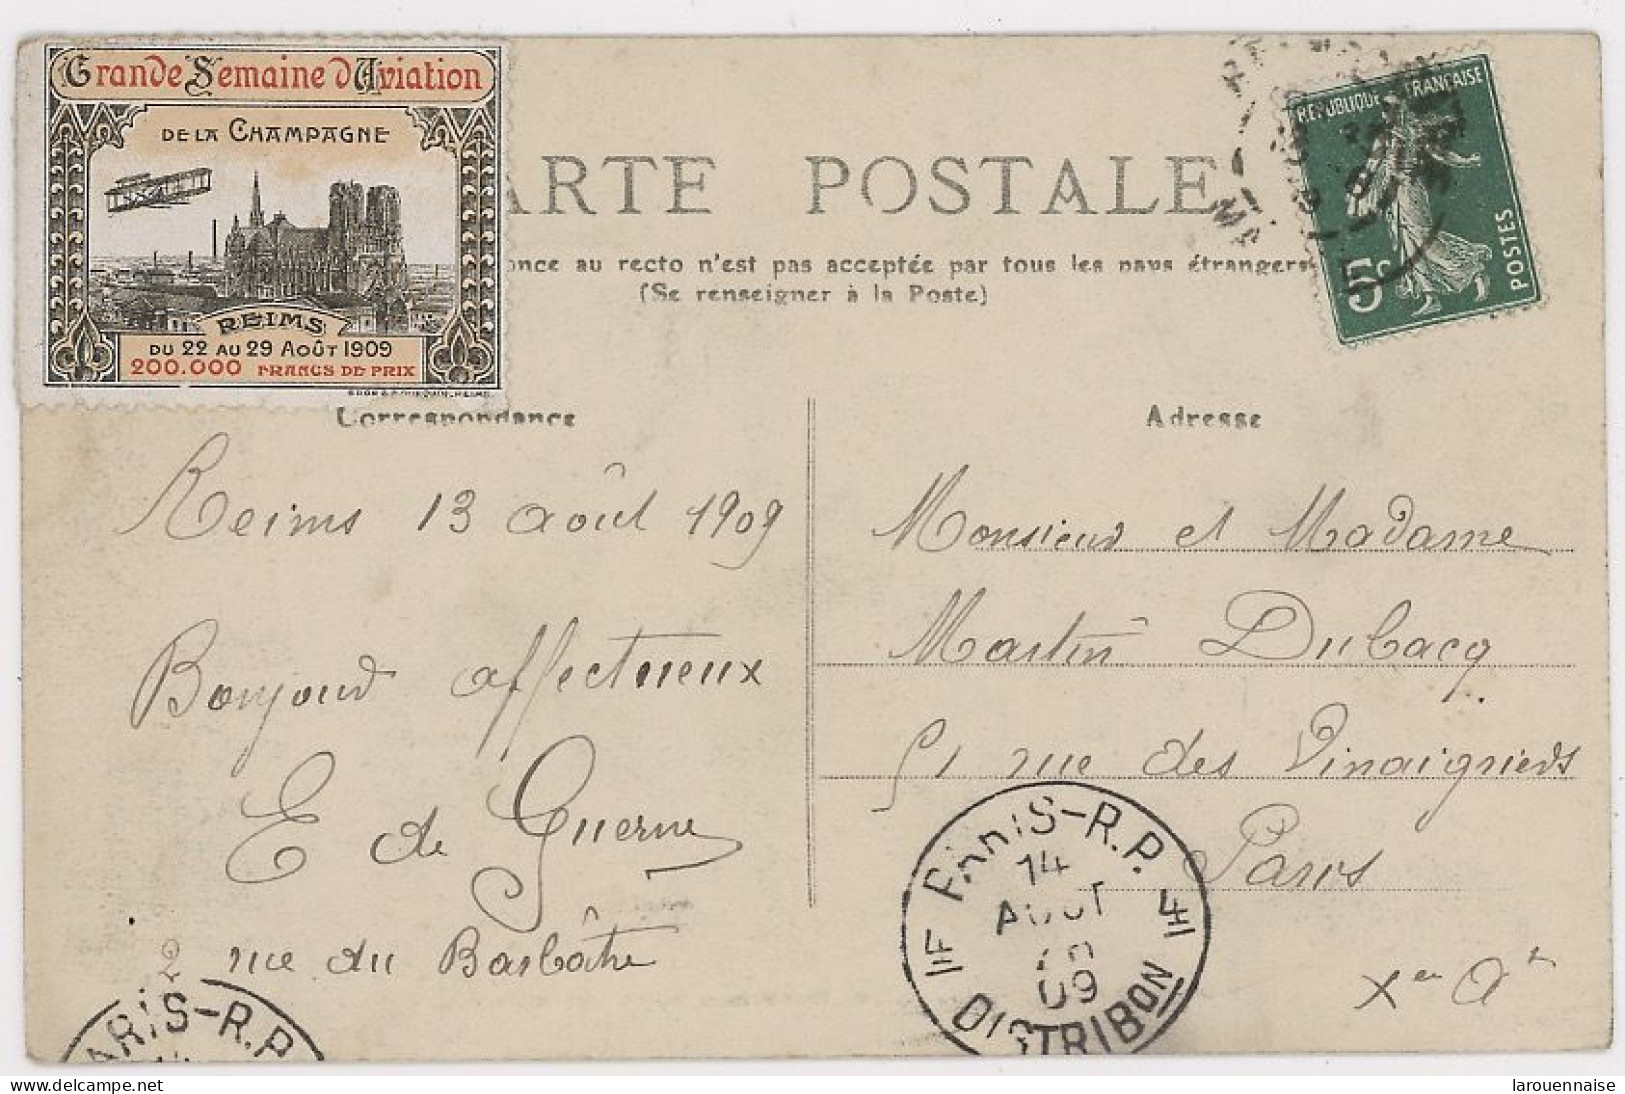 Grande Semaine d'Aviation
DE LA CHAMPAGNE
REIMS
DU 22 AU 29 AOÛT 1909
200.000 FRANCS DE PRIX
ARTE POSTALE
once au recto n'est pas acceptée par tous les pays étrangers
(Se renseigner à la Poste)
RÉPUBLIQUE FRANÇAISE
5c
POSTES
Correspondance
Adresse
Reims 13 août 1909
Bonjour affectueux
E de Guerne
2 rue du Barbâtre
Monsieur et Madame
Martin Dubacq
51 rue des Vinaigriers
Paris
Xen At
PARIS-R.P.
14
AOUT
09
DISTRIBON
ARIS-R.P.
larouennaise